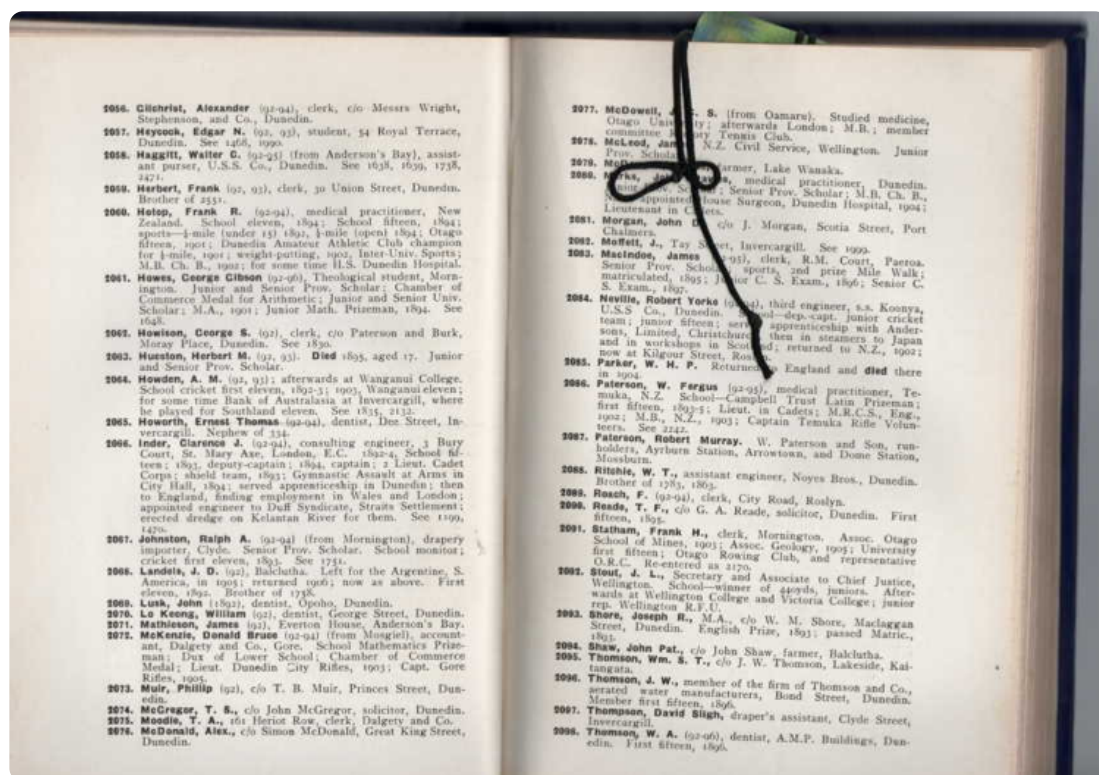 2056. Gilchrist, Alexander (92-94), clerk, c/o Messrs Wright,
Stephenson, and Co., Dunedin.
2057. Heycock, Edgar N. (92, 93), student, 54 Royal Terrace,
Dunedin. See 1468, 1990.
2058. Haggitt, Walter G. (92-95) (from Anderson's Bay), assist-
ant purser, U.S.S. Co., Dunedin. See 1638, 1639, 1738,
2471.
2059. Herbert, Frank (92, 93), clerk, 30 Union Street, Dunedin.
Brother of 2551.
2060. Hotop, Frank R. (92-94), medical practitioner, New
Zealand. School eleven, 1894; School fifteen, 1894;
sports—½-mile (under 15) 1892, ½-mile (open) 1894; Otago
fifteen, 1901; Dunedin Amateur Athletic Club champion
for ½-mile, 1901; weight-putting, 1902, Inter-Univ. Sports;
M.B. Ch. B., 1902; for some time H.S. Dunedin Hospital.
2061. Howes, George Gibson (92-96), Theological student, Morn-
ington. Junior and Senior Prov. Scholar; Chamber of
Commerce Medal for Arithmetic; Junior and Senior Univ.
Scholar; M.A., 1901; Junior Math. Prizeman, 1894. See
1648.
2062. Howison, George S. (92), clerk, c/o Paterson and Burk,
Moray Place, Dunedin. See 1830.
2063. Hueston, Herbert M. (92, 93). Died 1895, aged 17. Junior
and Senior Prov. Scholar.
2064. Howden, A. M. (92, 93); afterwards at Wanganui College.
School cricket first eleven, 1892-3; 1903, Wanganui eleven;
for some time Bank of Australasia at Invercargill, where
he played for Southland eleven. See 1835, 2132.
2065. Howorth, Ernest Thomas (92-94), dentist, Dee Street, In-
vercargill. Nephew of 334.
2066. Inder, Clarence J. (92-94), consulting engineer, 3 Bury
Court, St. Mary Axe, London, E.C. 1892-4, School fif-
teen; 1893, deputy-captain; 1894, captain; 2 Lieut. Cadet
Corps; shield team, 1893; Gymnastic Assault at Arms in
City Hall, 1894; served apprenticeship in Dunedin; then
to England, finding employment in Wales and London;
appointed engineer to Duff Syndicate, Straits Settlement;
erected dredge on Kelantan River for them. See 1199,
1470.
2067. Johnston, Ralph A. (92-94) (from Mornington), drapery
importer, Clyde. Senior Prov. Scholar. School monitor;
cricket first eleven, 1893. See 1751.
2068. Landels, J. D. (92), Balclutha. Left for the Argentine, S.
America, in 1905; returned 1906; now as above. First
eleven, 1892. Brother of 1758.
2069. Lusk, John (1892), dentist, Opoho, Dunedin.
2070. Lo Keong, William (92), dentist, George Street, Dunedin.
2071. Mathieson, James (92), Everton House, Anderson's Bay.
2072. McKenzie, Donald Bruce (92-94) (from Mosgiel), account-
ant, Dalgety and Co., Gore. School Mathematics Prize-
man; Dux of Lower School; Chamber of Commerce
Medal; Lieut. Dunedin City Rifles, 1903; Capt. Gore
Rifles, 1905.
2073. Muir, Phillip (92), c/o T. B. Muir, Princes Street, Dun-
edin.
2074. McGregor, T. S., c/o John McGregor, solicitor, Dunedin.
2075. Moodie, T. A., 161 Heriot Row, clerk, Dalgety and Co.
2076. McDonald, Alex., c/o Simon McDonald, Great King Street,
Dunedin.
2077. McDowell, S. (from Oamaru). Studied medicine,
Otago; afterwards London; M.B.; member
committee Tennis Club.
2078. McLeod, N.Z. Civil Service, Wellington. Junior
Prov. Scholar.
2079. farmer, Lake Wanaka.
2080. Marks, medical practitioner, Dunedin.
Senior Prov. Scholar; M.B. Ch. B.,
appointed House Surgeon, Dunedin Hospital, 1904;
Lieutenant in Cadets.
2081. Morgan, John c/o J. Morgan, Scotia Street, Port
Chalmers.
2082. Moffett, J., Tay Street, Invercargill. See 1999.
2083. MacIndoe, James clerk, R.M. Court, Paeroa.
Senior Prov. sports, 2nd prize Mile Walk;
matriculated, 1895; Junior C. S. Exam., 1896; Senior C.
S. Exam., 1897.
2084. Neville, Robert Yorke third engineer, s.s. Koonya,
U.S.S Co., Dunedin. School—dep.-capt. junior cricket
team; junior fifteen; apprenticeship with Ander-
sons, Limited, Christchurch; then in steamers to Japan
and in workshops in Scotland; returned to N.Z., 1902;
now at Kilgour Street,
2085. Parker, W. H. P. England and died there
in 1904.
2086. Paterson, W. Fergus (92-95), medical practitioner, Te-
muka, N.Z. School—Campbell Trust Latin Prizeman;
first fifteen, 1893-5; Lieut. in Cadets; M.R.C.S., Eng.,
1902; M.B., N.Z., 1903; Captain Temuka Rifle Volun-
teers. See 2242.
2087. Paterson, Robert Murray. W. Paterson and Son, run-
holders, Ayrburn Station, Arrowtown, and Dome Station,
Mossburn.
2088. Ritchie, W. T., assistant engineer, Noyes Bros., Dunedin.
Brother of 1783, 1863.
2089. Roach, F. (92-94), clerk, City Road, Roslyn.
2090. Reade, T. F., c/o G. A. Reade, solicitor, Dunedin. First
fifteen, 1895.
2091. Statham, Frank H., clerk, Mornington. Assoc. Otago
School of Mines, 1903; Assoc. Geology, 1905; University
first fifteen; Otago Rowing Club, and representative
O.R.C. Re-entered as 2170.
2092. Stout, J. L., Secretary and Associate to Chief Justice,
Wellington. School—winner of 440yds, juniors. After-
wards at Wellington College and Victoria College; junior
rep. Wellington R.F.U.
2093. Shore, Joseph R., M.A., c/o W. M. Shore, Maclaggan
Street, Dunedin. English Prize, 1893; passed Matric.,
1893.
2094. Shaw, John Pat., c/o John Shaw, farmer, Balclutha.
2095. Thomson, Wm. S. T., c/o J. W. Thomson, Lakeside, Kai-
tangata.
2096. Thomson, J. W., member of the firm of Thomson and Co.,
aerated water manufacturers, Bond Street, Dunedin.
Member first fifteen, 1896.
2097. Thompson, David Sligh, draper's assistant, Clyde Street,
Invercargill.
2098. Thomson, W. A. (92-96), dentist, A.M.P. Buildings, Dun-
edin. First fifteen, 1896.